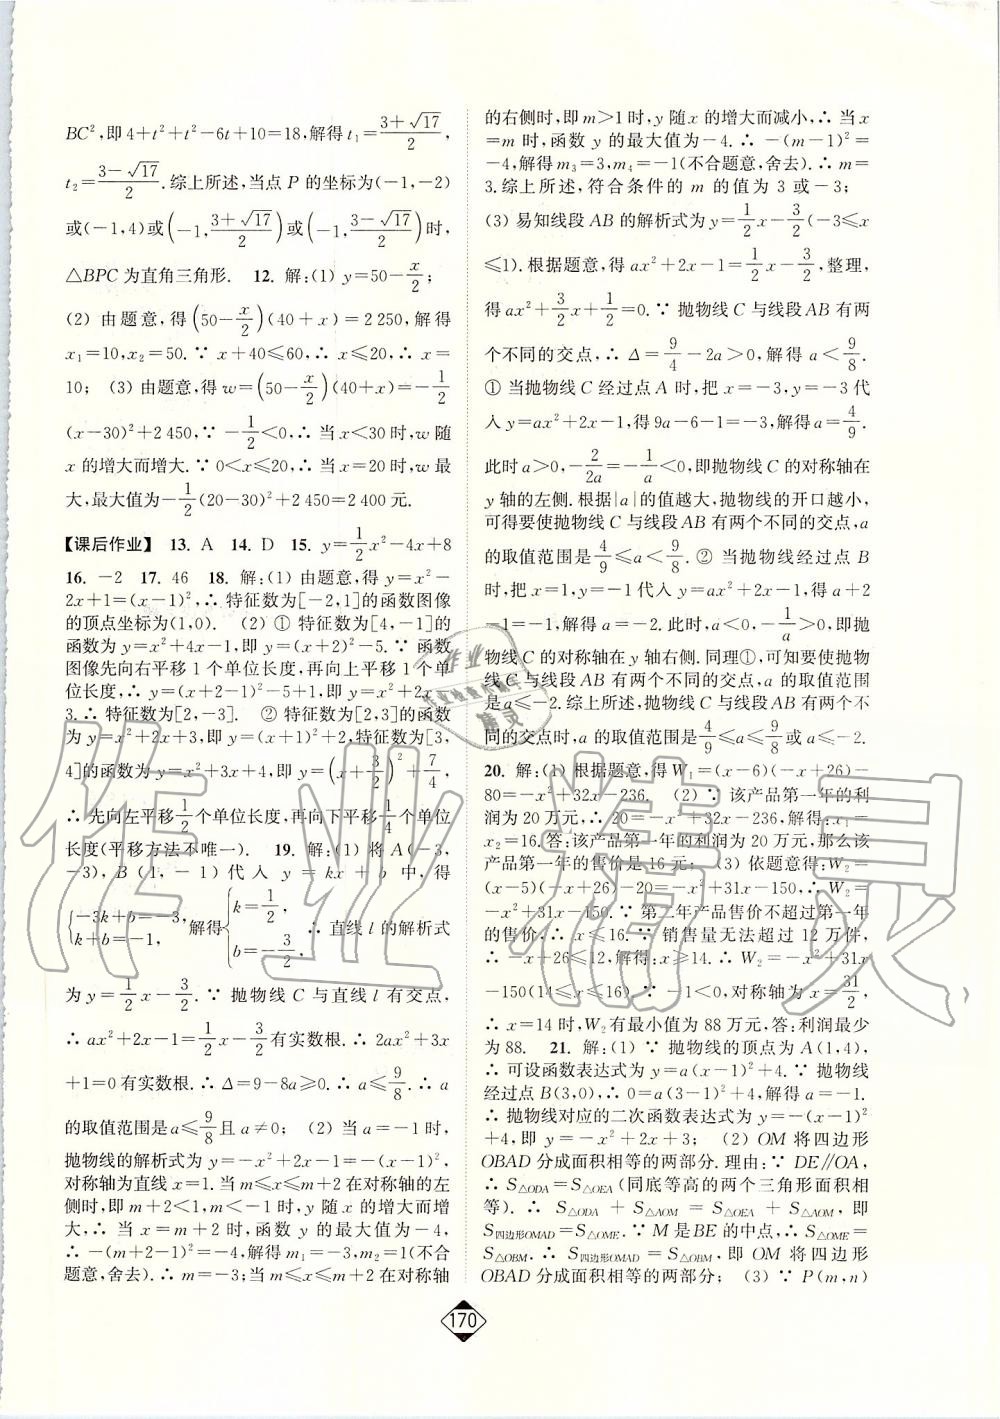 BC²,即 4+t²+t²-6t+10=18,解得 t₁=(3+√17)/2,
t₂=(3-√17)/2.综上所述,当点 P 的坐标为(-1,-2)
或(-1,4)或(-1,(3+√17)/2)或(-1,(3-√17)/2)时,
△BPC 为直角三角形. 12. 解:(1) y=50-x/2;
(2) 由题意,得(50-x/2)(40+x)=2 250,解得
x₁=10,x₂=50.∵ x+40≤60,∴ x≤20,∴ x=
10; (3) 由题意,得 w=(50-x/2)(40+x)=-1/2
(x-30)²+2 450,∵ -1/2<0,∴ 当 x<30 时,w 随
x 的增大而增大.∵ 0<x≤20,∴ 当 x=20 时,w 最
大,最大值为-1/2(20-30)²+2 450=2 400 元.
【课后作业】 13. A 14. D 15. y=1/2x²-4x+8
16. -2 17. 46 18. 解:(1) 由题意,得 y=x²-
2x+1=(x-1)²,∴ 特征数为[-2,1]的函数图像
的顶点坐标为(1,0). (2) ① 特征数为[4,-1]的
函数为 y=x²+4x-1,即 y=(x+2)²-5.∵ 函数
图像先向右平移 1 个单位长度,再向上平移 1 个单
位长度,∴ y=(x+2-1)²-5+1,即 y=x²+2x-
3.∴ 特征数为[2,-3]. ② 特征数为[2,3]的函数
为 y=x²+2x+3,即 y=(x+1)²+2,特征数为[3,
4]的函数为 y=x²+3x+4,即 y=(x+3/2)²+7/4,
∴ 先向左平移1/2个单位长度,再向下平移1/4个单位
长度(平移方法不唯一). 19. 解:(1) 将 A(-3,
-3),B(1,-1) 代入 y=kx+b 中,得
{-3k+b=-3, k+b=-1, 解得{k=1/2, b=-3/2, ∴ 直线 l 的解析式
为 y=1/2x-3/2.∵ 抛物线 C 与直线 l 有交点,
∴ ax²+2x-1=1/2x-3/2有实数根.∴ 2ax²+3x
+1=0 有实数根.∴ Δ=9-8a≥0.∴ a≤9/8.∴ a
的取值范围是 a≤9/8且 a≠0; (2) 当 a=-1 时,
抛物线的解析式为 y=-x²+2x-1=-(x-1)²,
对称轴为直线 x=1.当 m≤x≤m+2 在对称轴的左
侧时,即 m+2<1,m<-1 时,y 随 x 的增大而增
大,∴ 当 x=m+2 时,函数 y 的最大值为-4,
∴ -(m+2-1)²=-4,解得 m₁=-3,m₂=1(不合
题意,舍去).∴ m=-3;当 m≤x≤m+2 在对称轴
的右侧时,即 m>1 时,y 随 x 的增大而减小,∴ 当
x=m 时,函数 y 的最大值为-4.∴ -(m-1)²=
-4,解得 m₃=3,m₄=-1(不合题意,舍去).∴ m=
3.综上所述,符合条件的 m 的值为 3 或-3;
(3) 易知线段 AB 的解析式为 y=1/2x-3/2(-3≤x
≤1).根据题意,得 ax²+2x-1=1/2x-3/2,整理,
得 ax²+3/2x+1/2=0.∵ 抛物线 C 与线段 AB 有两
个不同的交点,∴ Δ=9/4-2a>0,解得 a<9/8.
① 当抛物线 C 经过点 A 时,把 x=-3,y=-3 代
入 y=ax²+2x-1,得 9a-6-1=-3,解得 a=4/9.
此时 a>0,-2/2a=-1/a<0,即抛物线 C 的对称轴在
y 轴的左侧.根据|a|的值越大,抛物线的开口越小,
可得要使抛物线 C 与线段 AB 有两个不同的交点,a
的取值范围是4/9≤a<9/8.② 当抛物线经过点 B
时,把 x=1,y=-1 代入 y=ax²+2x-1,得 a+
2-1=-1,解得 a=-2.此时,a<0,-1/a>0,即抛
物线 C 的对称轴在 y 轴右侧.同理①,可知要使抛
物线 C 与线段 AB 有两个不同的交点,a 的取值范围
是 a≤-2.综上所述,抛物线 C 与线段 AB 有两个不
同的交点时,a 的取值范围是4/9≤a≤9/8或 a≤-2.
20. 解:(1) 根据题意,得 W₁=(x-6)(-x+26)-
80=-x²+32x-236. (2) ∵ 该产品第一年的利
润为 20 万元,∴ 20=-x²+32x-236,解得:x₁=
x₂=16.答:该产品第一年的利润为 20 万元,那么该
产品第一年的售价是 16 元; (3) 依题意得:W₂=
(x-5)(-x+26)-20=-x²+31x-150,∴ W₂=
-x²+31x-150.∵ 第二年产品售价不超过第一年
的售价,∴ x≤16.∵ 销售量无法超过 12 万件,
∴ -x+26≤12,解得:x≥14.∴ W₂=-x²+31x
-150(14≤x≤16).∵ -1<0,对称轴为 x=31/2,
∴ x=14 时,W₂有最小值为 88 万元,答:利润最少
为 88. 21. 解:(1) ∵ 抛物线的顶点为 A(1,4),
∴ 可设函数表达式为 y=a(x-1)²+4.∵ 抛物线
经过点 B(3,0),∴ 0=a(3-1)²+4,解得 a=-1.
∴ 抛物线对应的二次函数表达式为 y=-(x-1)²
+4,即 y=-x²+2x+3; (2) OM 将四边形
OBAD 分成面积相等的两部分.理由:∵ DE∥OA,
∴ S△ODA=S△OEA(同底等高的两个三角形面积相
等).∴ S△ODA+S△AOM=S△OEA+S△AOM,即
S四边形OMAD=S△OME.∵ M 是 BE 的中点,∴ S△OME=
S△OBM.∴ S四边形OMAD=S△OBM,即 OM 将四边形
OBAD 分成面积相等的两部分; (3) ∵ P(m,n)
170
作业精灵